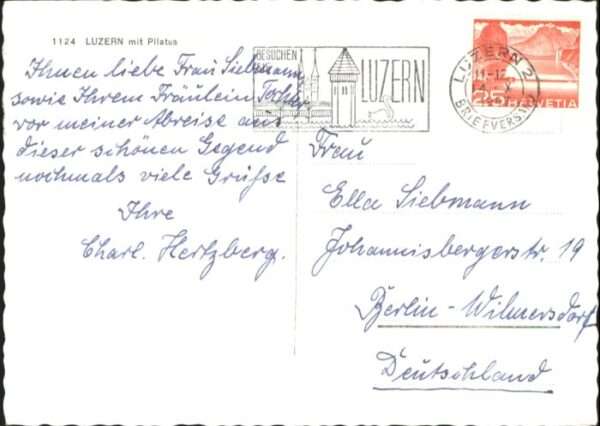 1124 LUZERN mit Pilatus
Ihnen liebe Frau Siebmann
sowie Ihrem Fräulein Tochter
vor meiner Abreise aus
dieser schönen Gegend
nochmals viele Grüße
Ihre
Charl. Hertzberg.
BESUCHEN
LUZERN
LUZERN 2
11-12
X
BRIEFVERS.
25 HELVETIA
Frau
Ella Siebmann
Johannisbergerstr. 19
Berlin-Wilmersdorf
Deutschland